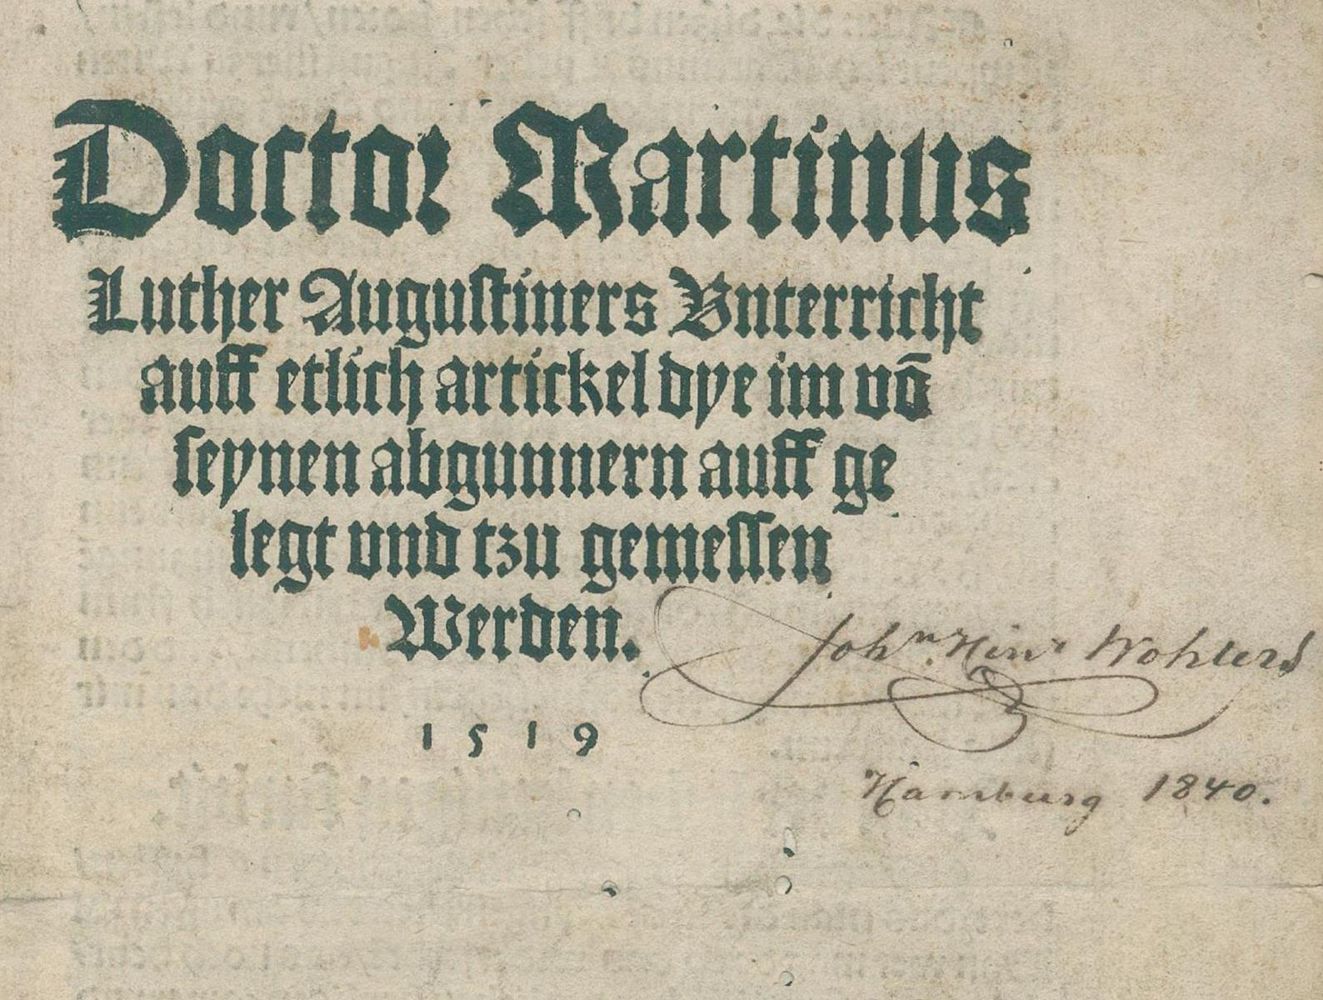 Doctor Martinus
Luther Augustiners Vnterricht
auff etlich artickel dye im vō
seynen abgunnern auff ge
legt vnd tzu gemessen
Werden.
1519
John. Hinr Wohlers
Hamburg 1840.